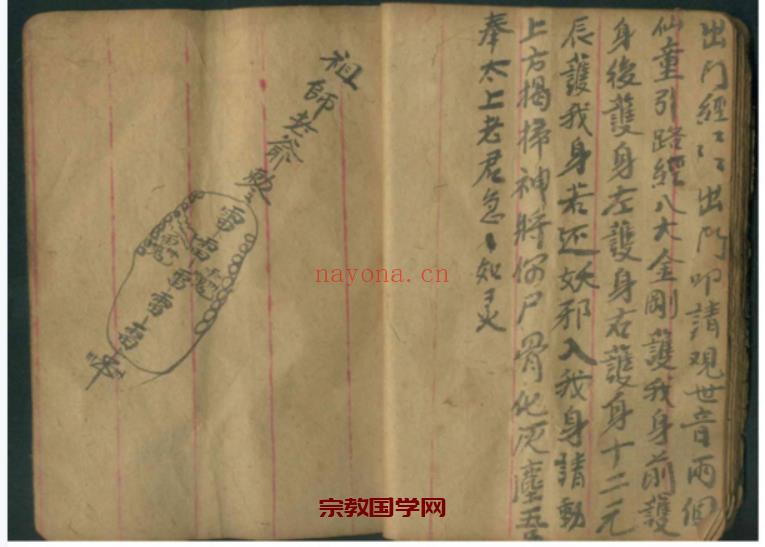 出門經 出門叩請觀世音兩個
仙童引路經八大金剛護我身前護
身後護身左護身右護身十二元
辰護我身若还妖邪入我身請動
上方揭掃神將你尸骨化灰塵吾
奉太上老君急〻如灵
祖師老爺敕
雷雷
雷雷雷
nayona.cn
宗教国学网